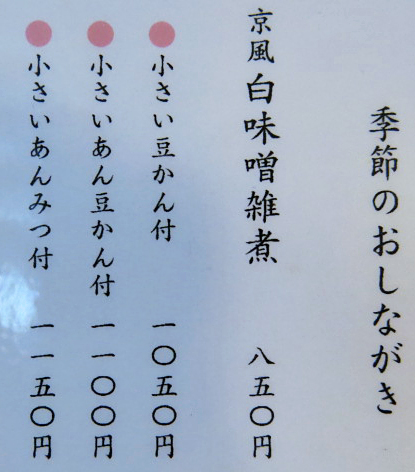 季節のおしながき
京風白味噌雑煮 八五〇円
小さい豆かん付 一〇五〇円
小さいあん豆かん付 一一〇〇円
小さいあんみつ付 一一五〇円